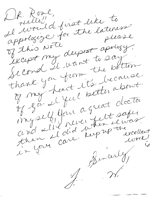 Dr. Rone,
Hello!!
I would first like to
appologize for the lateness
of this note please
except my deepest apology.
Second I want to say
thank you from the bottom
of my heart it's because
of you I feel better about
myself. Your a great doctor
and I've never felt safer
then I did when I was
in your care keep up the
excellent
work!
Sincerely